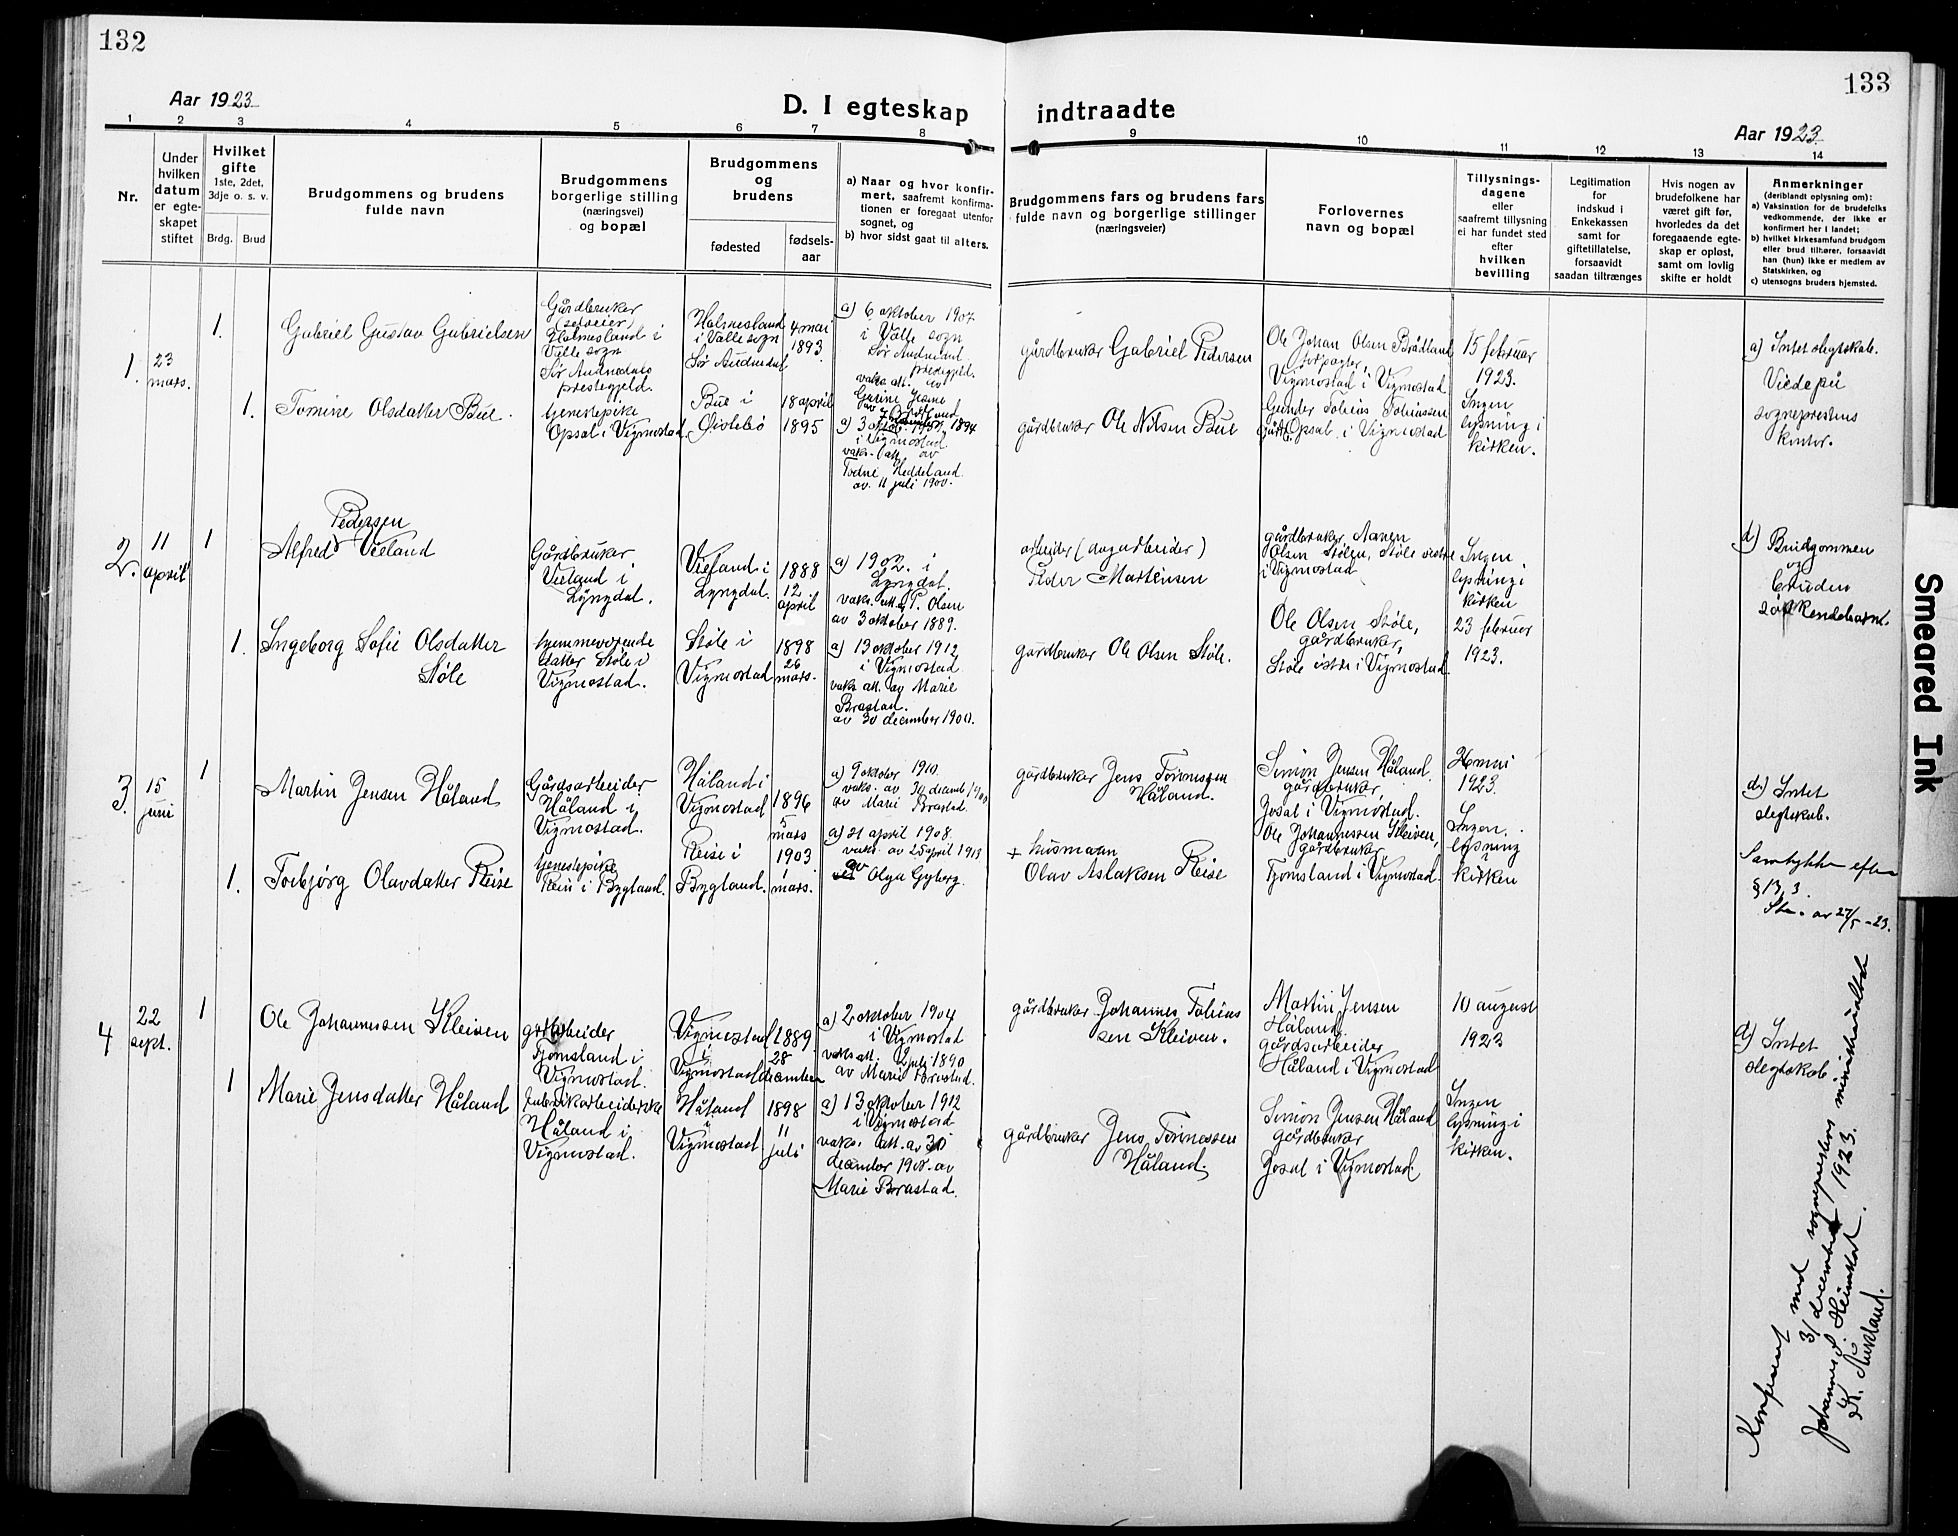 132
133
Aar 1923
D. I egteskap indtraadte
Aar 1923
1 2 3 4 5 6 7 8 9 10 11 12 13 14
Nr.
Under
hvilken
datum
er egte-
skapet
stiftet
Hvilket
gifte
1ste, 2det,
3dje o. s. v.
Brdg. Brud
Brudgommens og brudens
fulde navn
Brudgommens
borgerlige stilling
(næringsvei)
og bopæl
Brudgommens
og
brudens
fødested
fødsels-
aar
a) Naar og hvor konfir-
mert, saafremt konfirma-
tionen er foregaat utenfor
sognet, og
b) hvor sidst gaat til alters.
Brudgommens fars og brudens fars
fulde navn og borgerlige stillinger
(næringsveier)
Forlovernes
navn og bopæl
Tillysnings-
dagene
eller
saafremt tillysning
ei har fundet sted
efter
hvilken
bevilling
Legitimation
for
indskud i
Enkekassen
samt for
giftetillatelse,
forsaavidt
saadan tiltrænges
Hvis nogen av
brudefolkene har
været gift før,
hvorledes da det
foregaaende egte-
skap er opløst,
samt om lovlig
skifte er holdt
Anmerkninger
(deriblandt oplysning om):
a) Vaksination for de brudefolks
vedkommende, der ikke er
konfirmert her i landet;
b) hvilket kirkesamfund brudgom
eller brud tilhører, forsaavidt
han (hun) ikke er medlem av
Statskirken, og
c) utensogns bruders hjemsted.
1.
23
mars.
1.
Gabriel Gustav Gabrielsen
Gårdbruker
(selveier)
Holmesland i
Valle sogn
Sør Audnedals
prestegjeld.
Holmesland
i Valle sogn
Sør Audnedal
4 mai
1893
a) 6 oktober 1907
i Valle sogn
Sør Audnedal
prestegjeld.
vaks. att. av
gårdbruker Gabriel Pedersen
Ole Johan Olsen Brådland
forpagter,
Vigmostad i Vigmostad
15 februar
1923.
a) Intet slegtskab.
Viede på
sogneprestens
kontor.
1.
Tomine Olsdatter Bue.
tjenestepike
Opsal i Vigmostad
Bue i
Øislebø
18 april
1895
i Vigmostad.
vaks. att. av
Heddeland
av 11 juli 1900.
gårdbruker Ole Nilsen Bue
Gunder Tobias Tobiassen
Opsal i Vigmostad
Ingen
lysning i
kirken.
2.
11
april
1
Pedersen
Alfred Vieland
Gårdbruker
Vieland i
Lyngdal.
Vieland i
Lyngdal.
1888
12
april
a) 1902. i
Lyngdal.
vaks. att. P. Olsen
av 3 oktober 1889.
arbeider (dagarbeider)
Peder Martensen
gårdbruker
Olsen Støle, Støle vestre
i Vigmostad
Ingen
lysning i
kirken
23 februar
1923.
d) Brudgommen
og
bruden
søskendebarn.
1.
Ingeborg Sofie Olsdatter
Støle
hjemmeværende
datter Støle i
Vigmostad.
Støle i
Vigmostad
1898
26
mars.
a) 13 oktober 1912
i Vigmostad
vaks. att. av Marie
Brastad.
av 30 december 1900.
gårdbruker Ole Olsen Støle.
Ole Olsen Støle,
gårdbruker,
Støle østre i Vigmostad
3.
15
juni
1
Martin Jensen Håland
Gårdsarbeider
Håland i
Vigmostad.
Håland i
Vigmostad
1896
5
mars
a) 9 oktober 1910.
vaks. av 30 decemb 1900
av Marie Brastad.
gårdbruker Jens Tønnessen
Håland.
Simon Jensen Håland.
gårdbruker,
Josal i Vigmostad.
mai
1923.
d.) Intet
slegtskab.
1.
Torbjørg Olavdatter Reise
tjenestepike
Reise i Bygland.
Reise i
Bygland.
1903
1
mars.
a) 21 april 1908.
vaks. av 25 april 1913
av Olga Gyberg.
+ husmann
Olav Aslaksen Reise
Ole Johannssen Kleiven,
gårdbruker
Tjomsland i Vigmostad.
Ingen
lysning
i
kirken
Samtykke efter
§ 13, 3.
av 27/5 - 23.
4
22
sept.
1
Ole Johannssen Kleiven
Tjomsland i
Vigmostad.
Vigmostad
i
Vigmostad
1889
28
december
a) 2 oktober 1904
i Vigmostad
vaks att. 2 juli 1890
av Marie Brastad.
gårdbruker Johannes Tobias
sen Kleiven.
Martin Jensen
Håland.
gårdsarbeider
Håland i Vigmostad
10 august
1923
d) Intet
slegtskab.
1
Marie Jensdatter Håland
fabrikarbeiderske
Håland i
Vigmostad.
Håland
i
Vigmostad
1898
11
juli
a) 13 oktober 1912
i Vigmostad
vaks. att. av 30
decembr 1900. av
Marie Brastad.
gårdbruker Jens Tønnessen
Håland.
Simon Jensen Håland
gårdbruker
Josal i Vigmostad
Ingen
lysning i
kirken.
Konferert med sogneprestens ministerialbok
31 december 1923.
Johannes S. Heimstad.
K. Nuland.
Smeared Ink